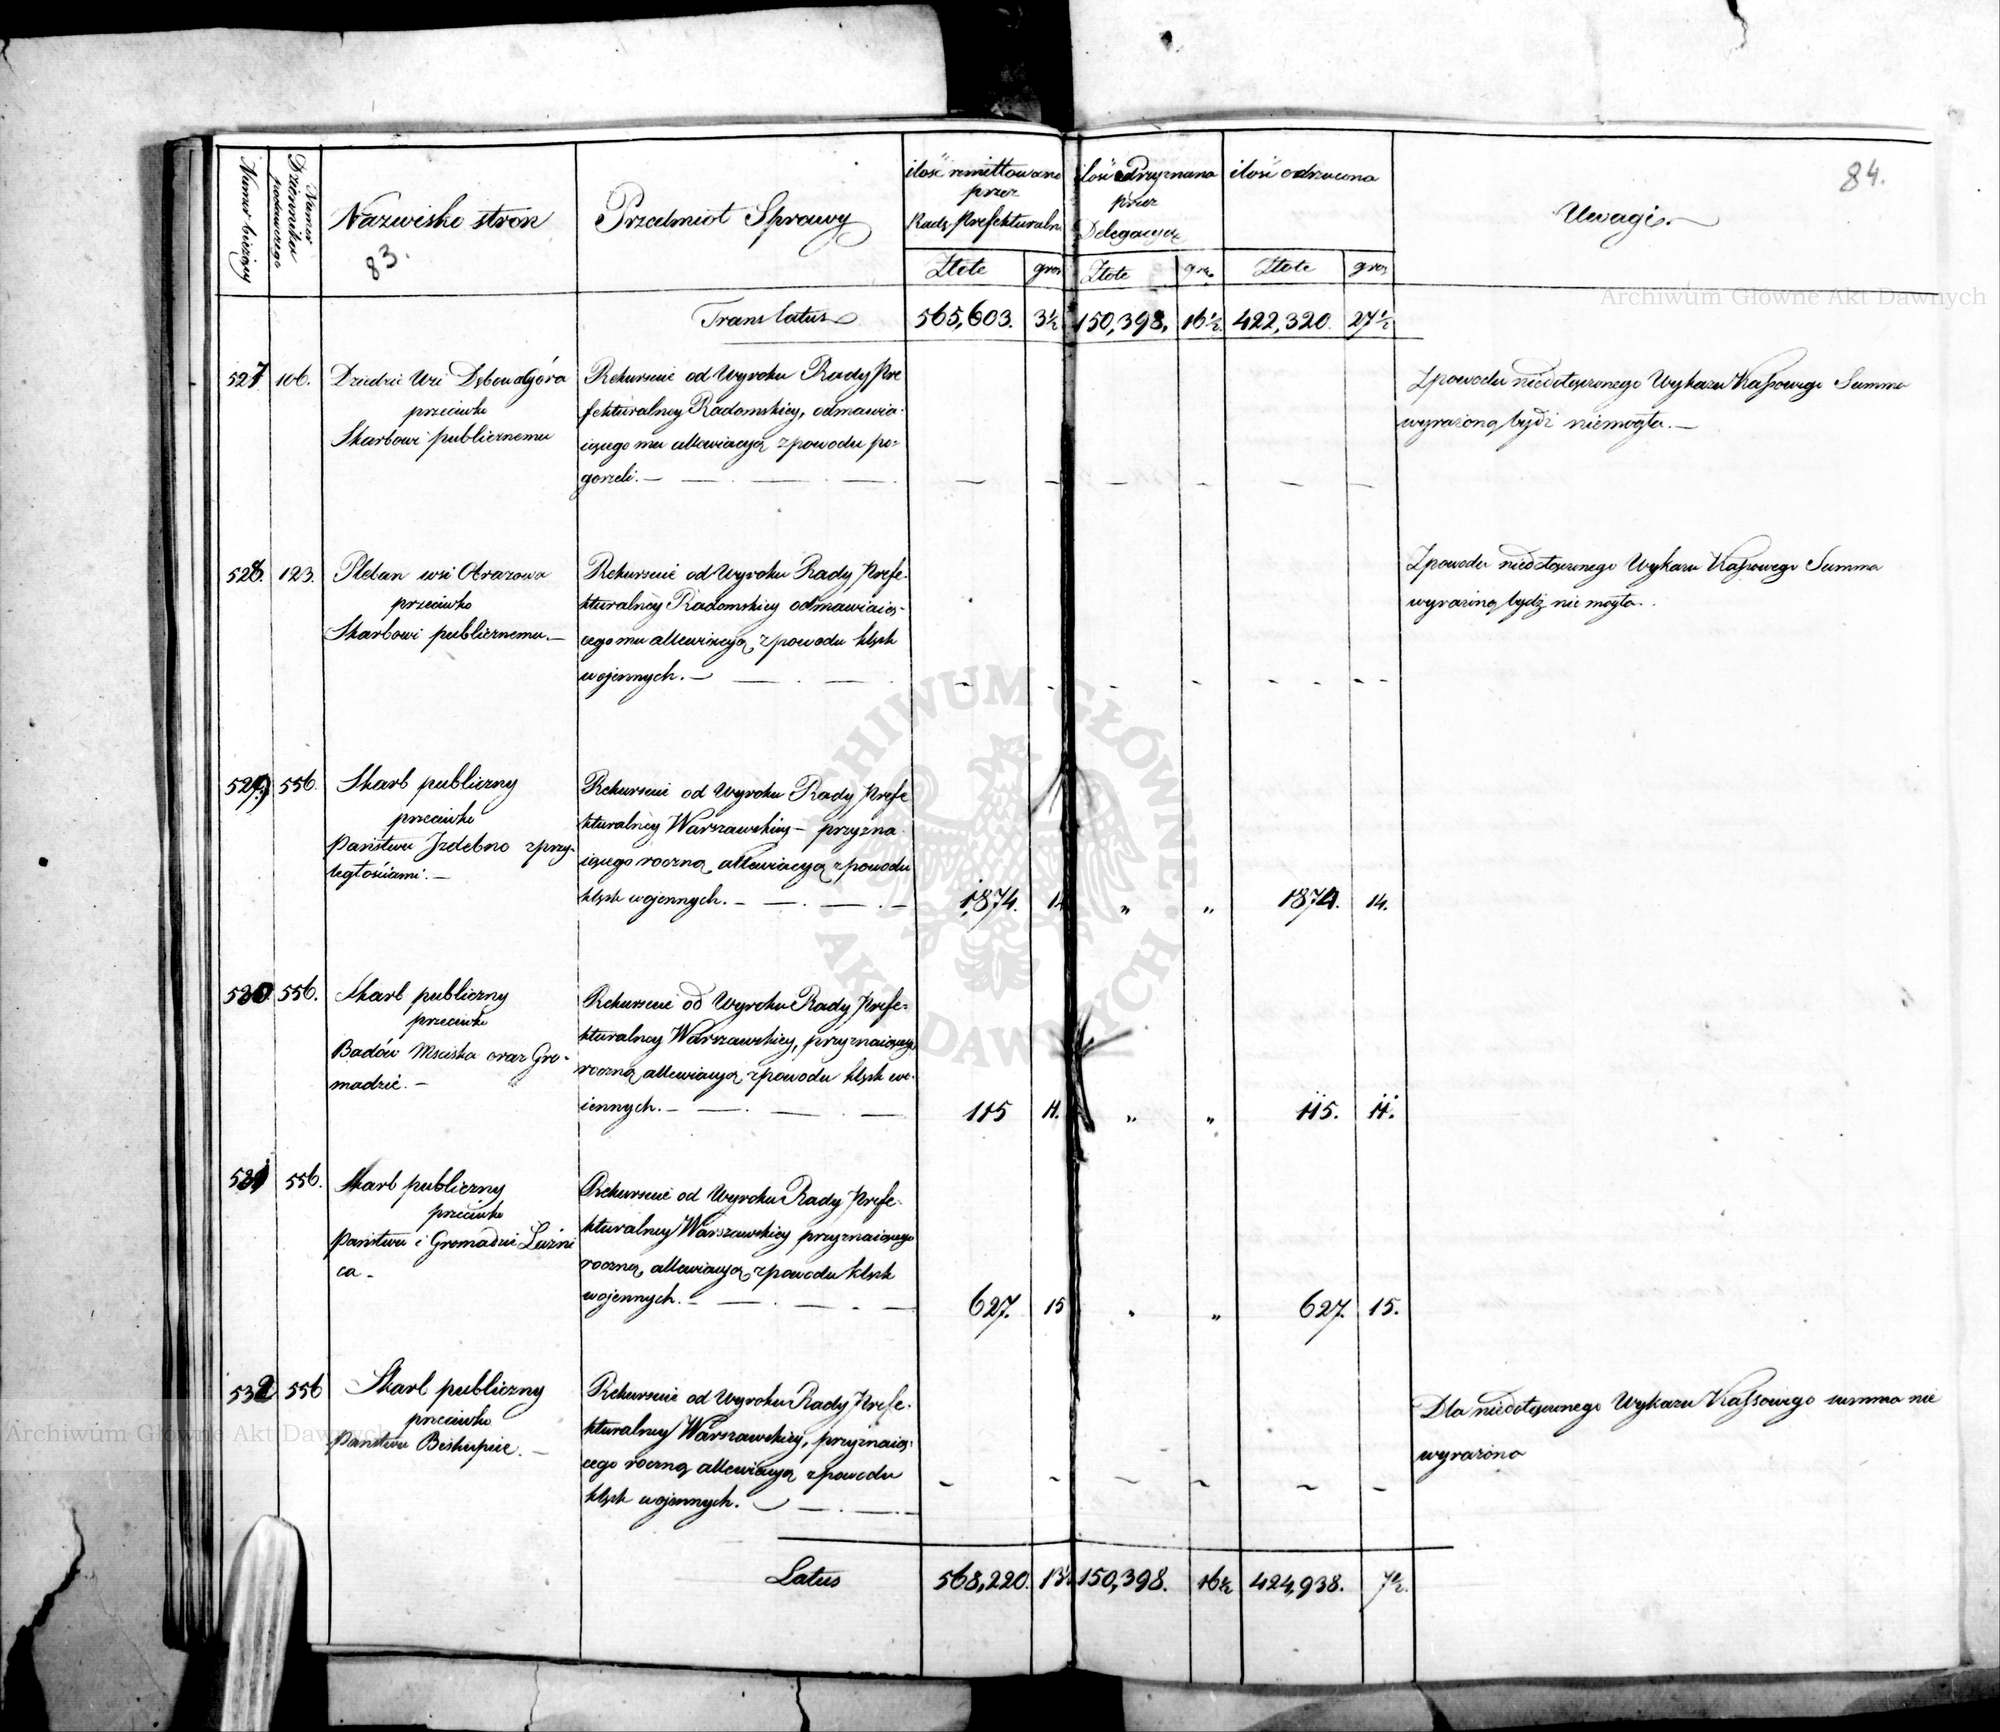 Numer bieżący
Numer Dziennika podawczego
Nazwisko stron
83.
Przedmiot Sprawy
ilość remittowana przez Radę Prefekturalną
ilość Przyznana przez Delegacyą
ilość odrzucona
Uwagi
84.
Złote gros
Złote gro.
Złote gros
Translatus 565,603. 3½ 150,398. 16½ 422,320. 27½
527. 106.
Dziedzic Wsi Dębowa Góra
przeciwko
Skarbowi publicznemu
Rekursuie od Wyroku Rady Pre
fekturalney Radomskiey, odmawia-
iącego mu allewiacyą z powodu po-
gorzeli. —
Z powodu niedołączonego Wykazu Kassowego Summa
wyrażoną bydź niemogła. —
528. 123.
Pleban wsi Obrazowa
przeciwko
Skarbowi publicznemu. —
Rekursuie od Wyroku Rady Prefe-
kturalney Radomskiey odmawiaią-
cego mu allewiacyą z powodu klęsk
wojennych. —
Z powodu niedołączonego Wykazu Kassowego Summa
wyrażoną bydź nie mogła.
529. 556.
Skarb publiczny
przeciwko
Państwu Izdebno z przy-
ległościami. —
Rekursuie od Wyroku Rady Prefe
kturalney Warszawskiey — przyzna-
iącego roczną allewiacyą z powodu
klęsk wojennych. —
1874. 14 „ „ 1874. 14.
530. 556.
Skarb publiczny
przeciwko
Badów Msciska oraz Gro-
madzie. —
Rekursuie od Wyroku Rady Prefe-
kturalney Warszawskiey, przyznaiącego
roczną allewiacyą z powodu klęsk wo-
iennych. —
115 11. „ „ 115. 11.
531 556.
Skarb publiczny
przeciwko
Państwu i Gromadzie Luzni
ca —
Rekursuie od Wyroku Rady Prefe-
kturalney Warszawskiey przyznaiącego
roczną allewiacyą z powodu klęsk
wojennych. —
627. 15 „ „ 627. 15.
532 556
Skarb publiczny
przeciwko
Państwu Biskupice. —
Rekursuie od Wyroku Rady Prefe-
kturalney Warszawskiey, przyznaią-
cego roczną allewiacyą z powodu
klęsk wojennych. —
Dla niedołączonego Wykazu Kassowego summa nie
wyrażona
Latus 568,220. 13½ 150,398. 16½ 424,938. 7½.
Archiwum Główne Akt Dawnych
Archiwum Główne Akt Dawnych
ARCHIWUM GŁÓWNE AKT DAWNYCH